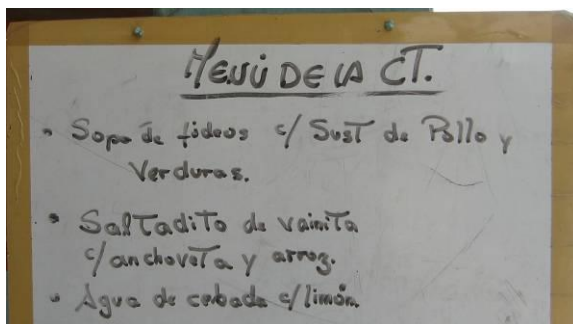 MENÚ DE LA CT.
• Sopa de fideos c/ Sust de Pollo y
Verduras.
• Saltadito de vainita
c/anchoveta y arroz.
• Agua de cebada c/limón.